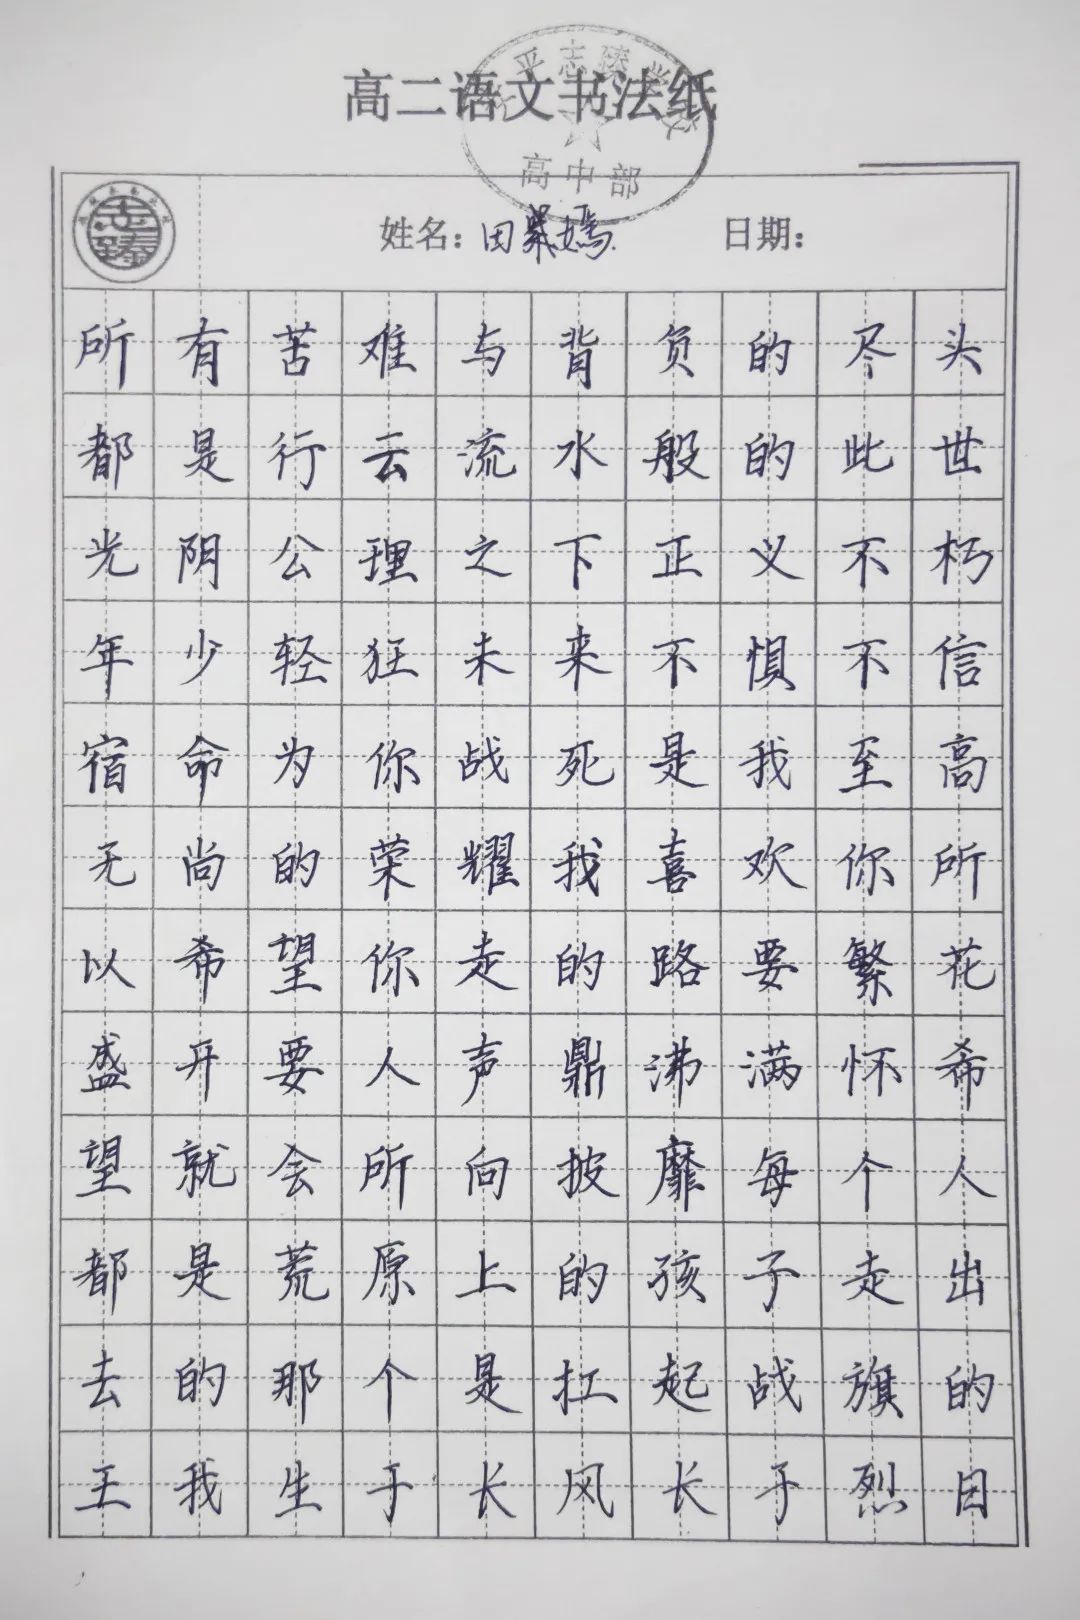 高二语文书法纸
平志臻学校
高中部
志臻
姓名：田紫嫣 日期：
所有苦难与背负的尽头
都是行云流水般的此世
光阴公理之下正义不朽
年少轻狂未来不惧不信
宿命为你战死是我至高
无尚的荣耀我喜欢你所
以希望你走的路要繁花
盛开要人声鼎沸满怀希
望就会所向披靡每个人
都是荒原上的孩子走出
去的那个是扛起战旗的
王我生于长风长于烈日